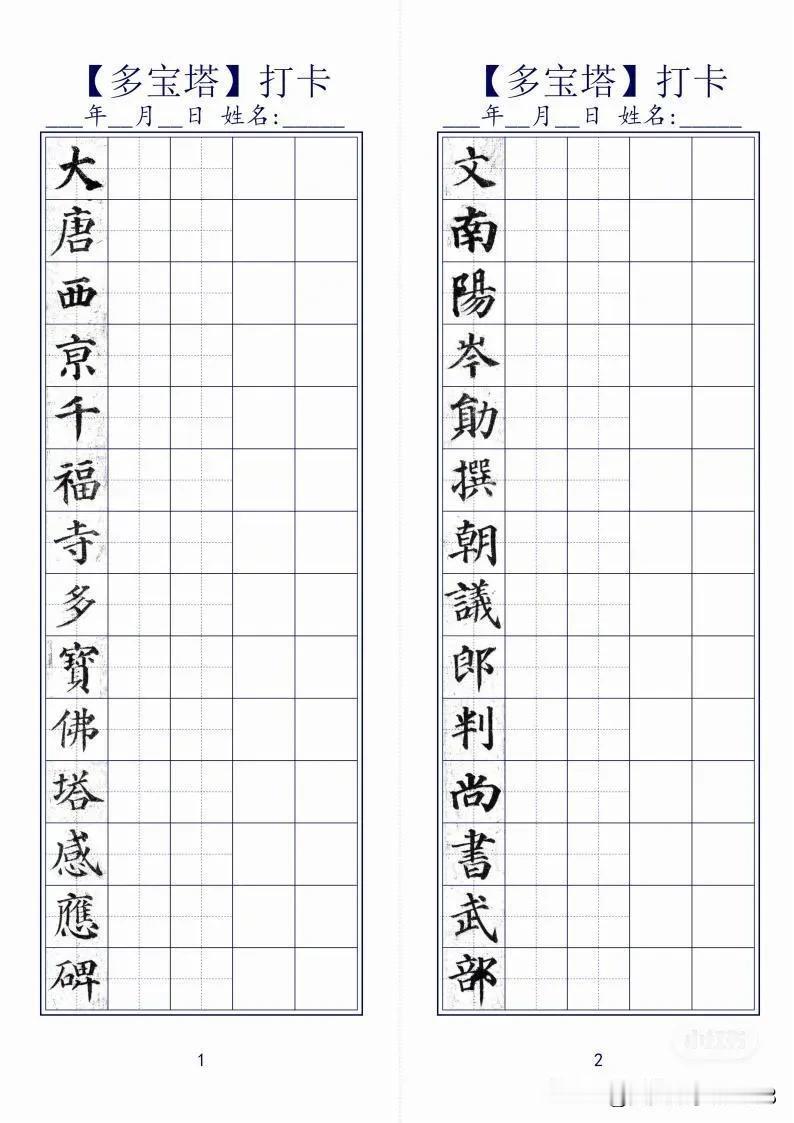 【多宝塔】打卡
___年__月__日 姓名:_____
大
唐
西
亰
千
福
寺
多
寶
佛
塔
感
應
碑
1
【多宝塔】打卡
___年__月__日 姓名:_____
文
南
陽
岑
勛
撰
朝
議
郎
判
尚
書
武
部
2
小红书